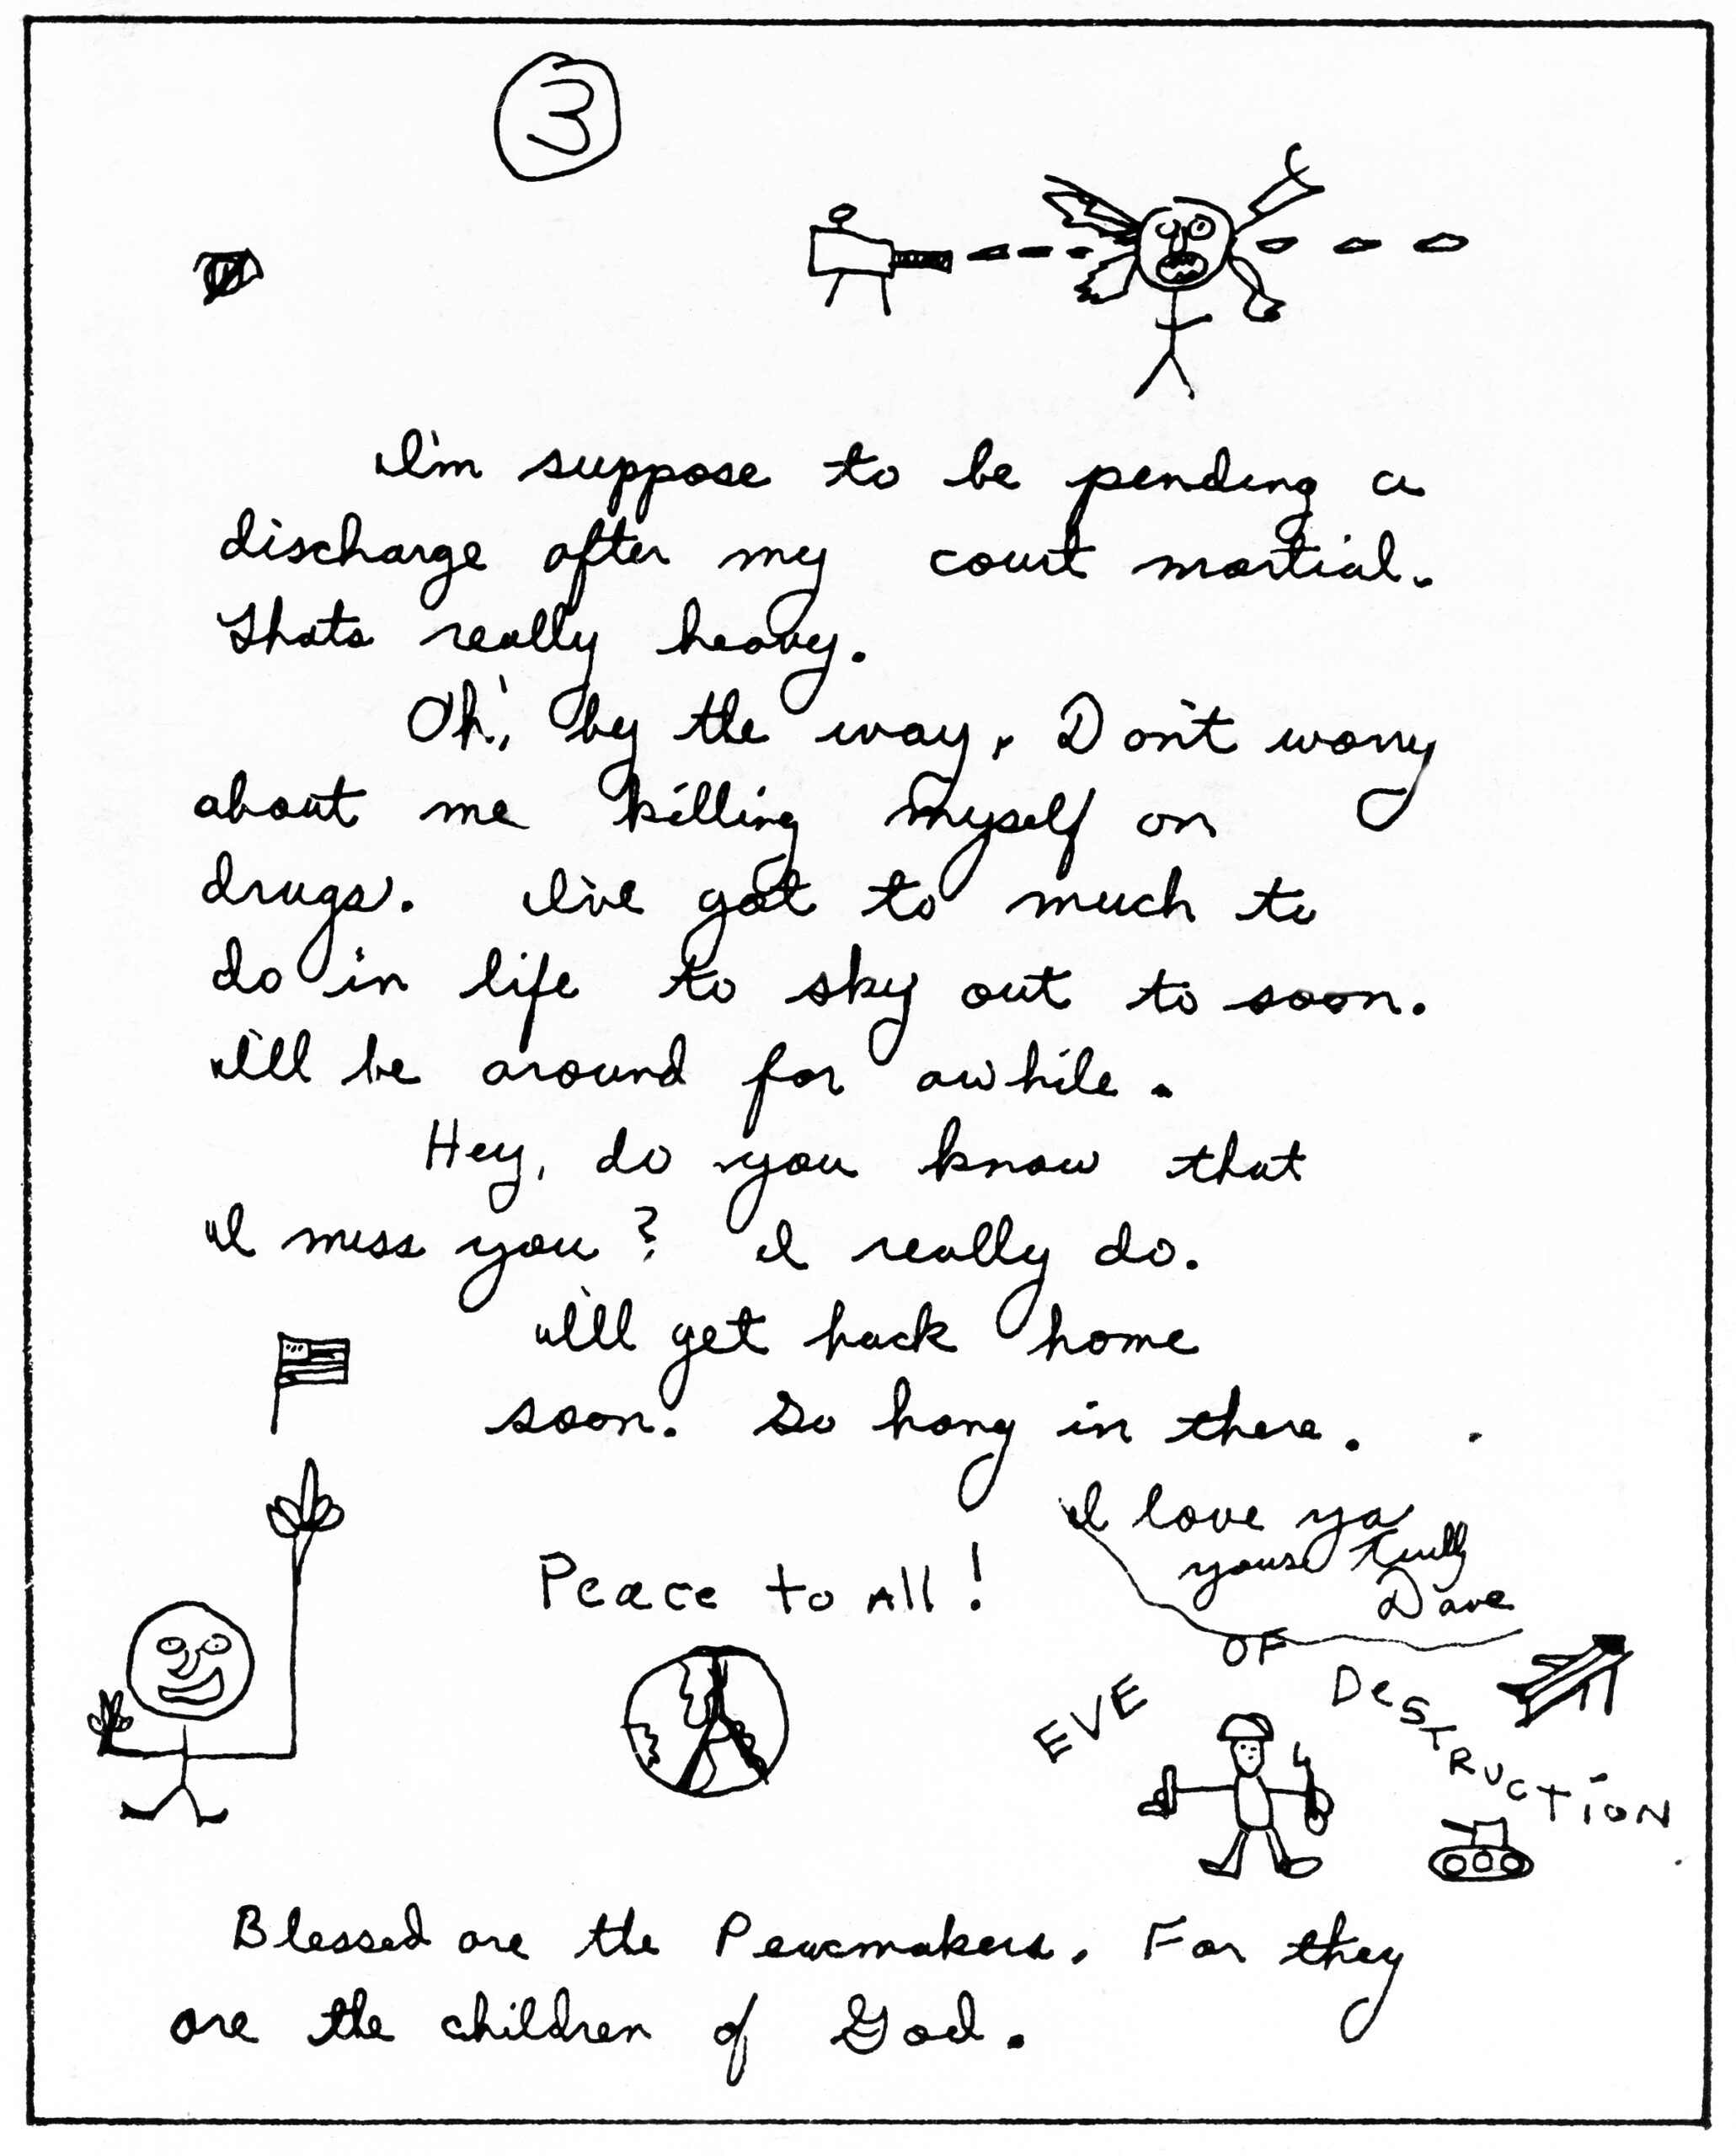 3
I'm suppose to be pending a
discharge after my court martial.
Thats really heavy.
Oh, by the way, Don't worry
about me killing myself on
drugs. I've got to much to
do in life to sky out to soon.
I'll be around for awhile.
Hey, do you know that
I miss you? I really do.
I'll get back home
soon. So hang in there.
I love ya
yours trully
Dave
Peace to All!
EVE OF DESTRUCTION
Blessed are the Peacmakers. For they
are the children of God.